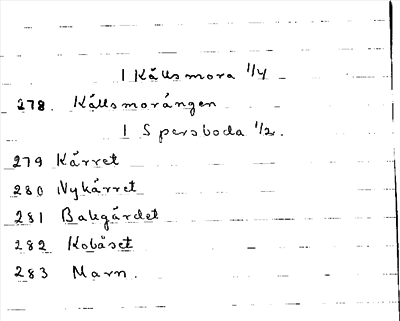 1 Källsmora 1/4
278. Källsmorängen
1 Spersboda 1/2.
279 Kärret
280 Nykärret
281 Bakgärdet
282 Kobåset
283 Marn.